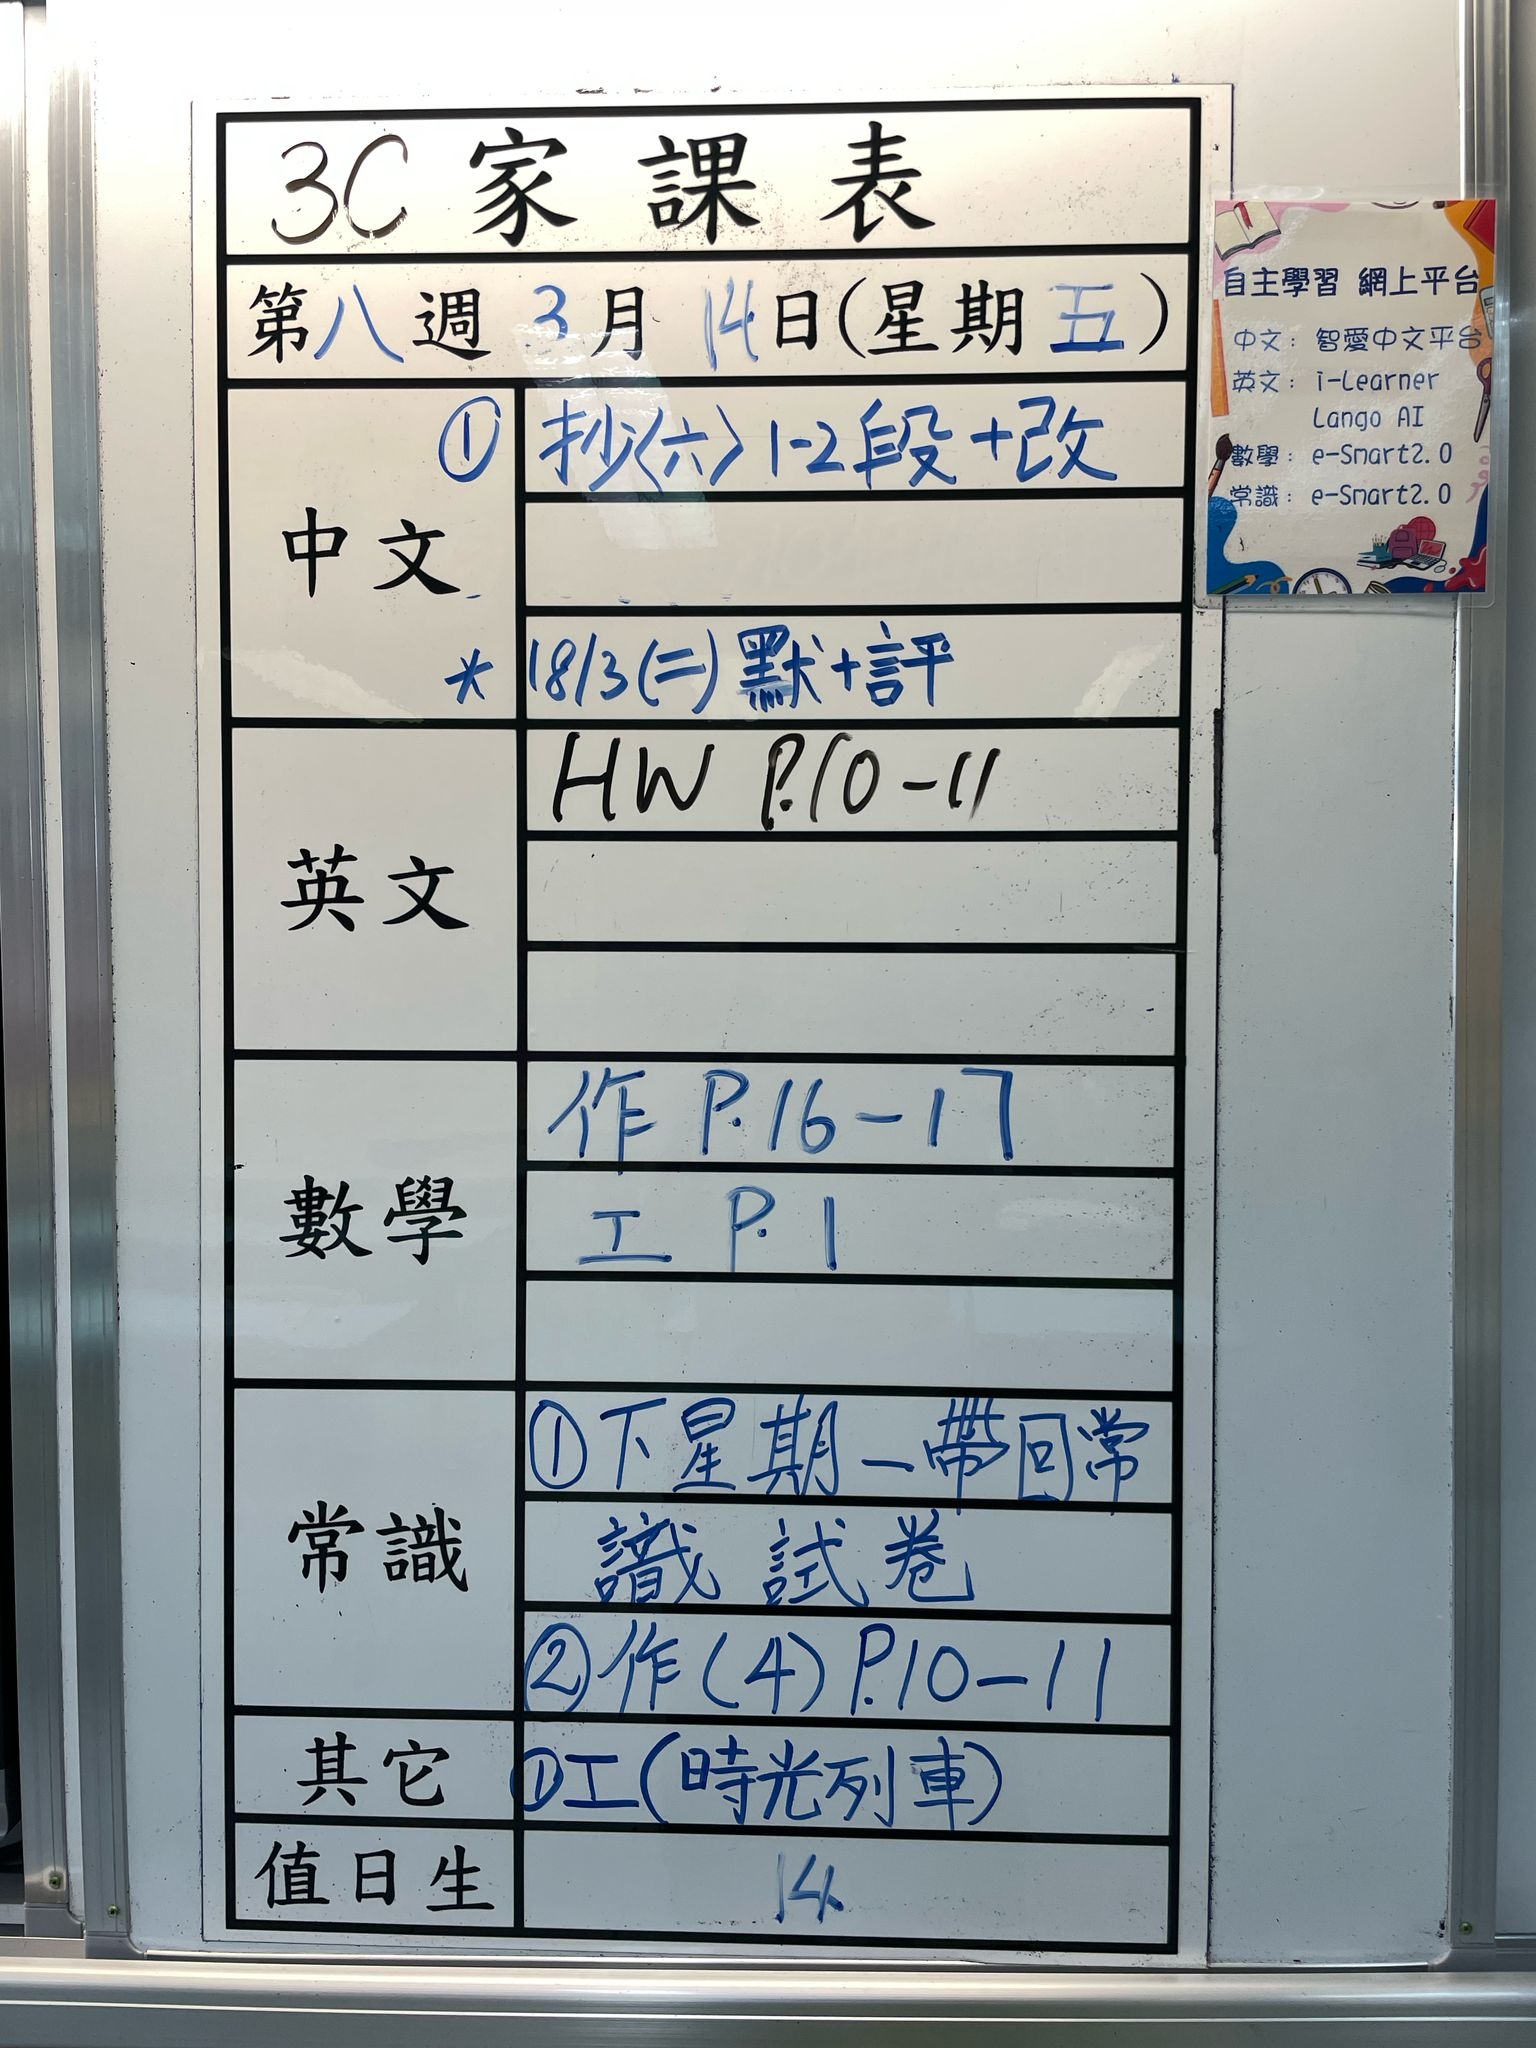 3C 家課表
第八週 3月14日(星期五)
中文
① 抄〈六〉1-2段+改
* 18/3(二)默+評
英文
HW P.10-11
數學
作 P.16-17
工 P.1
常識
①下星期一帶回常
識試卷
②作(4)P.10-11
其它
①工(時光列車)
值日生
14
自主學習 網上平台
中文: 智愛中文平台
英文: i-Learner
Lango AI
數學: e-Smart2.0
常識: e-Smart2.0